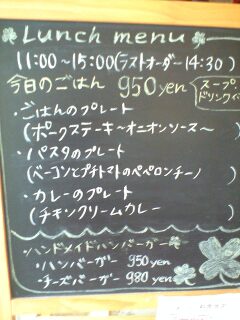 Lunch menu
11:00~15:00(ラストオーダー14:30)
今日のごはん 950yen
スープ、
ドリンク
・ごはんのプレート
(ポークステーキ~オニオンソース~ )
・パスタのプレート
(ベーコンとプチトマトのペペロンチーノ )
・カレーのプレート
(チキンクリームカレー )
・ハンドメイドハンバーガー
・ハンバーガー 950yen
・チーズバーガー 980yen